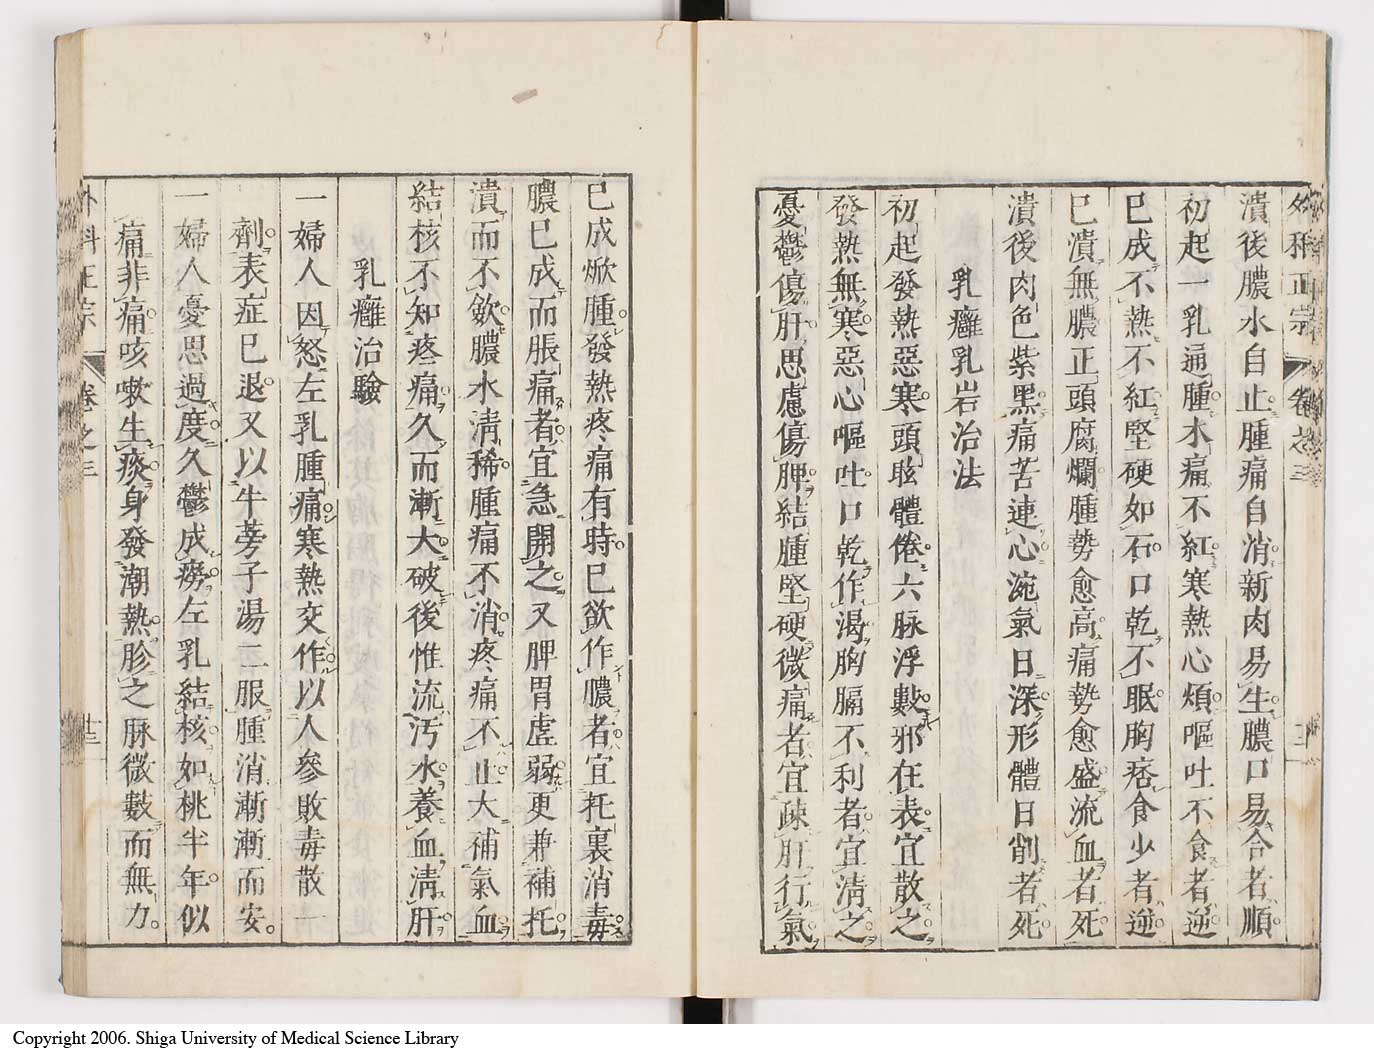 外科正宗 卷之三
潰後膿水自止腫痛自消新肉易生膿口易合者順
初起一乳通腫木痛不紅寒熱心煩嘔吐不食者逆
已成不熱不紅堅硬如石口乾不眠胸痞食少者逆
已潰無膿正頭腐爛腫勢愈高痛勢愈盛流血者死
潰後肉色紫黑痛苦連心滝氣日深形體日削者死
乳癰乳岩治法
初起發熱惡寒頭眩體倦六脉浮數邪在表宜散之
發熱無寒惡心嘔吐口乾作渴胸膈不利者宜清之
憂鬱傷肝思慮傷脾結腫堅硬微痛者宜疎肝行氣
已成焮腫發熱疼痛有時已欲作膿者宜托裏消毒
膿已成而脹痛者宜急開之又脾胃虛弱更兼補托
潰而不斂膿水清稀腫痛不消疼痛不止大補氣血
結核不知疼痛久而漸大破後惟流汚水養血清肝
乳癰治驗
一婦人因怒左乳腫痛寒熱交作以人參敗毒散一
劑表症已退又以牛蒡子湯二服腫消漸漸而安
一婦人憂思過度久鬱成癆左乳結核如桃半年似
痛非痛咳嗽生痰身發潮熱胗之脉微數而無力
外科正宗 卷之三 廿三
Copyright 2006. Shiga University of Medical Science Library